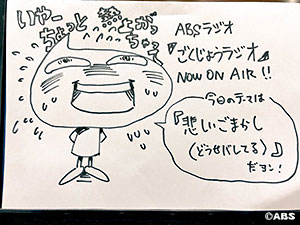 いやー
ちょっと熱上がっ
ちゃって
ABSラジオ
『ごくじょうラジオ』
NOW ON AIR!!
今日のテーマは
『悲しいごまかし
(どうせバレてる)』
だヨン!
©ABS